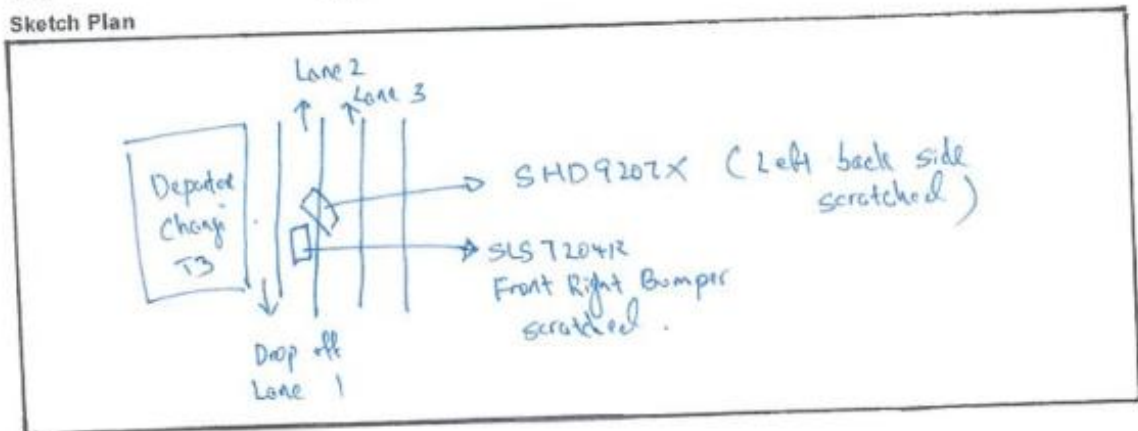 Sketch Plan
Lane 2
Lane 3
Departure
Changi
T3
SHD9207X (Left back side
scratched)
SLS7204R
Front Right Bumper
scratched.
Drop off
Lane 1